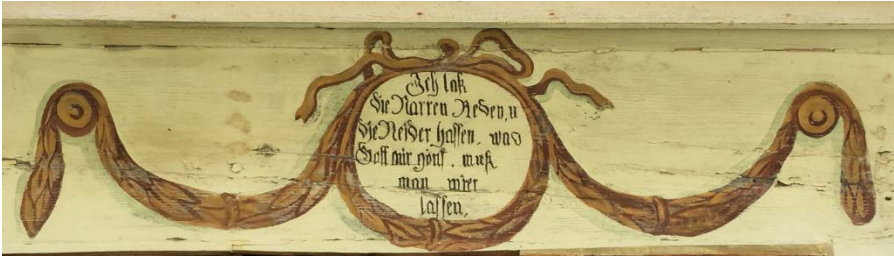 Ich laß
die Narren Reden, u
die Neider hassen, was
Gott mir gönt, muß
man mier
lassen,